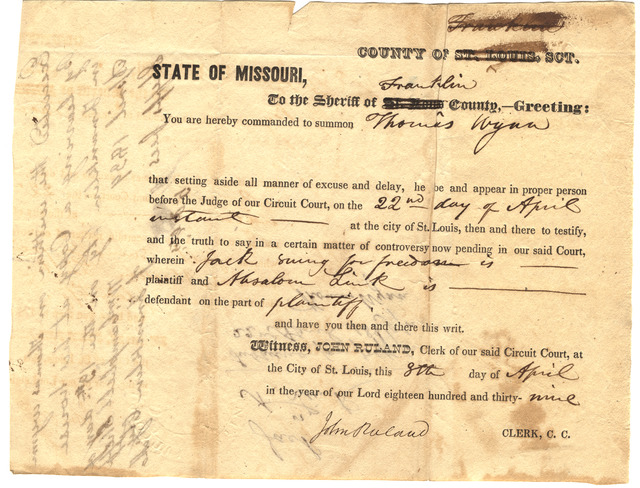 Franklin
COUNTY OF ST. LOUIS, SCT.
STATE OF MISSOURI,
Franklin
To the Sheriff of St. Louis County,—Greeting:
You are hereby commanded to summon Thomas Wynn
that setting aside all manner of excuse and delay, he be and appear in proper person
before the Judge of our Circuit Court, on the 22nd day of April
instant at the city of St. Louis, then and there to testify,
and the truth to say in a certain matter of controversy now pending in our said Court,
wherein Jack suing for freedom is
plaintiff and Absalom Link is
defendant on the part of plaintiff.
and have you then and there this writ.
Witness, JOHN RULAND, Clerk of our said Circuit Court, at
the City of St. Louis, this 8th day of April
in the year of our Lord eighteen hundred and thirty-nine
John Ruland CLERK, C. C.